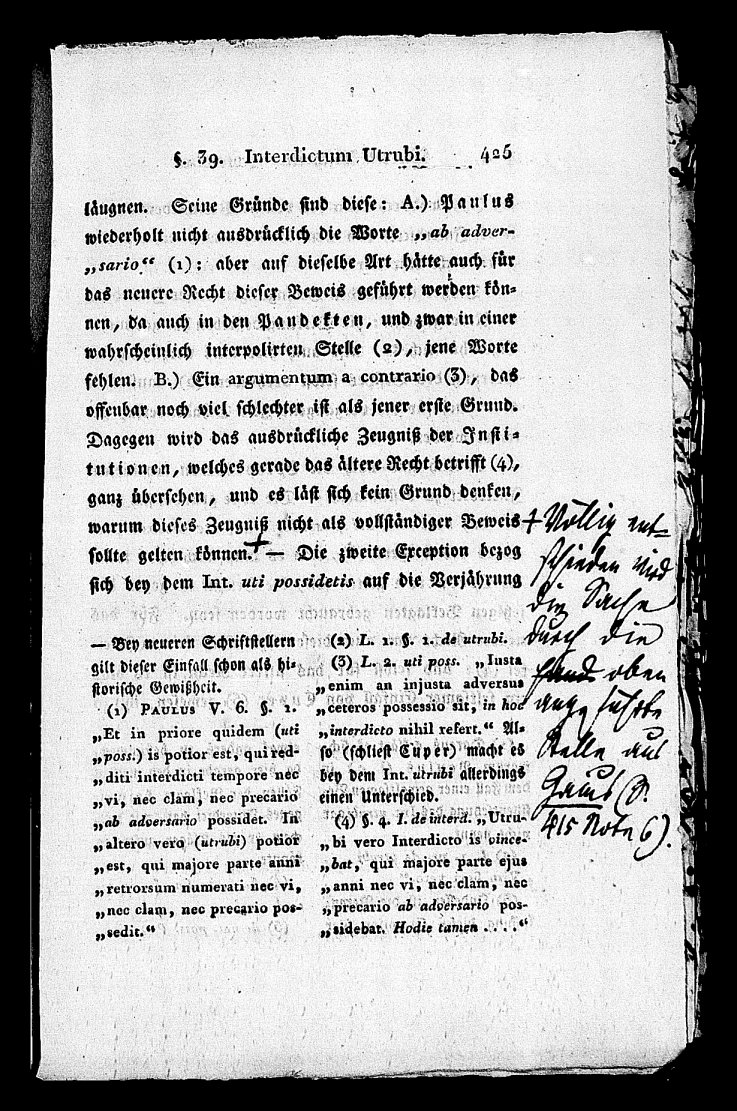 §. 39. Interdictum Utrubi. 425
läugnen. Seine Gründe sind diese: A.) Paulus
wiederholt nicht ausdrücklich die Worte „ab adver-
„sario“ (1): aber auf dieselbe Art hätte auch für
das neuere Recht dieser Beweis geführt werden kön=
nen, da auch in den Pandekten, und zwar in einer
wahrscheinlich interpolirten Stelle (2), jene Worte
fehlen. B.) Ein argumentum a contrario (3), das
offenbar noch viel schlechter ist als jener erste Grund.
Dagegen wird das ausdrückliche Zeugniß der Insti=
tutionen, welches gerade das ältere Recht betrifft (4),
ganz übersehen, und es läst sich kein Grund denken,
warum dieses Zeugniß nicht als vollständiger Beweis
sollte gelten können.+ — Die zweite Exception bezog
sich bey dem Int. uti possidetis auf die Verjährung
— Bey neueren Schriftstellern
gilt dieser Einfall schon als hi=
storische Gewißheit.
(1) PAULUS V. 6. §. 1.
„Et in priore quidem (uti
„poss.) is potior est, qui red-
„diti interdicti tempore nec
„vi, nec clam, nec precario
„ab adversario possidet. In
„altero vero (utrubi) potior
„est, qui majore parte anni
„retrorsum numerati nec vi,
„nec clam, nec precario pos-
„sedit.“
(2) L. 1. §. 1. de utrubi.
(3) L. 2. uti poss. „Iusta
„enim an injusta adversus
„ceteros possessio sit, in hoc
„interdicto nihil refert.“ Al=
so (schließt Cuper) macht es
bey dem Int. utrubi allerdings
einen Unterschied.
(4) §. 4. I. de interd. „Utru-
„bi vero Interdicto is vince-
„bat, qui majore parte ejus
„anni nec vi, nec clam, nec
„precario ab adversario pos-
„sidebat. Hodie tamen . . . .“
+ Völlig ent=
schieden wird
die Sache
durch die
oben
angeführte
Stelle aus
Gaius (S.
415 Note 6).